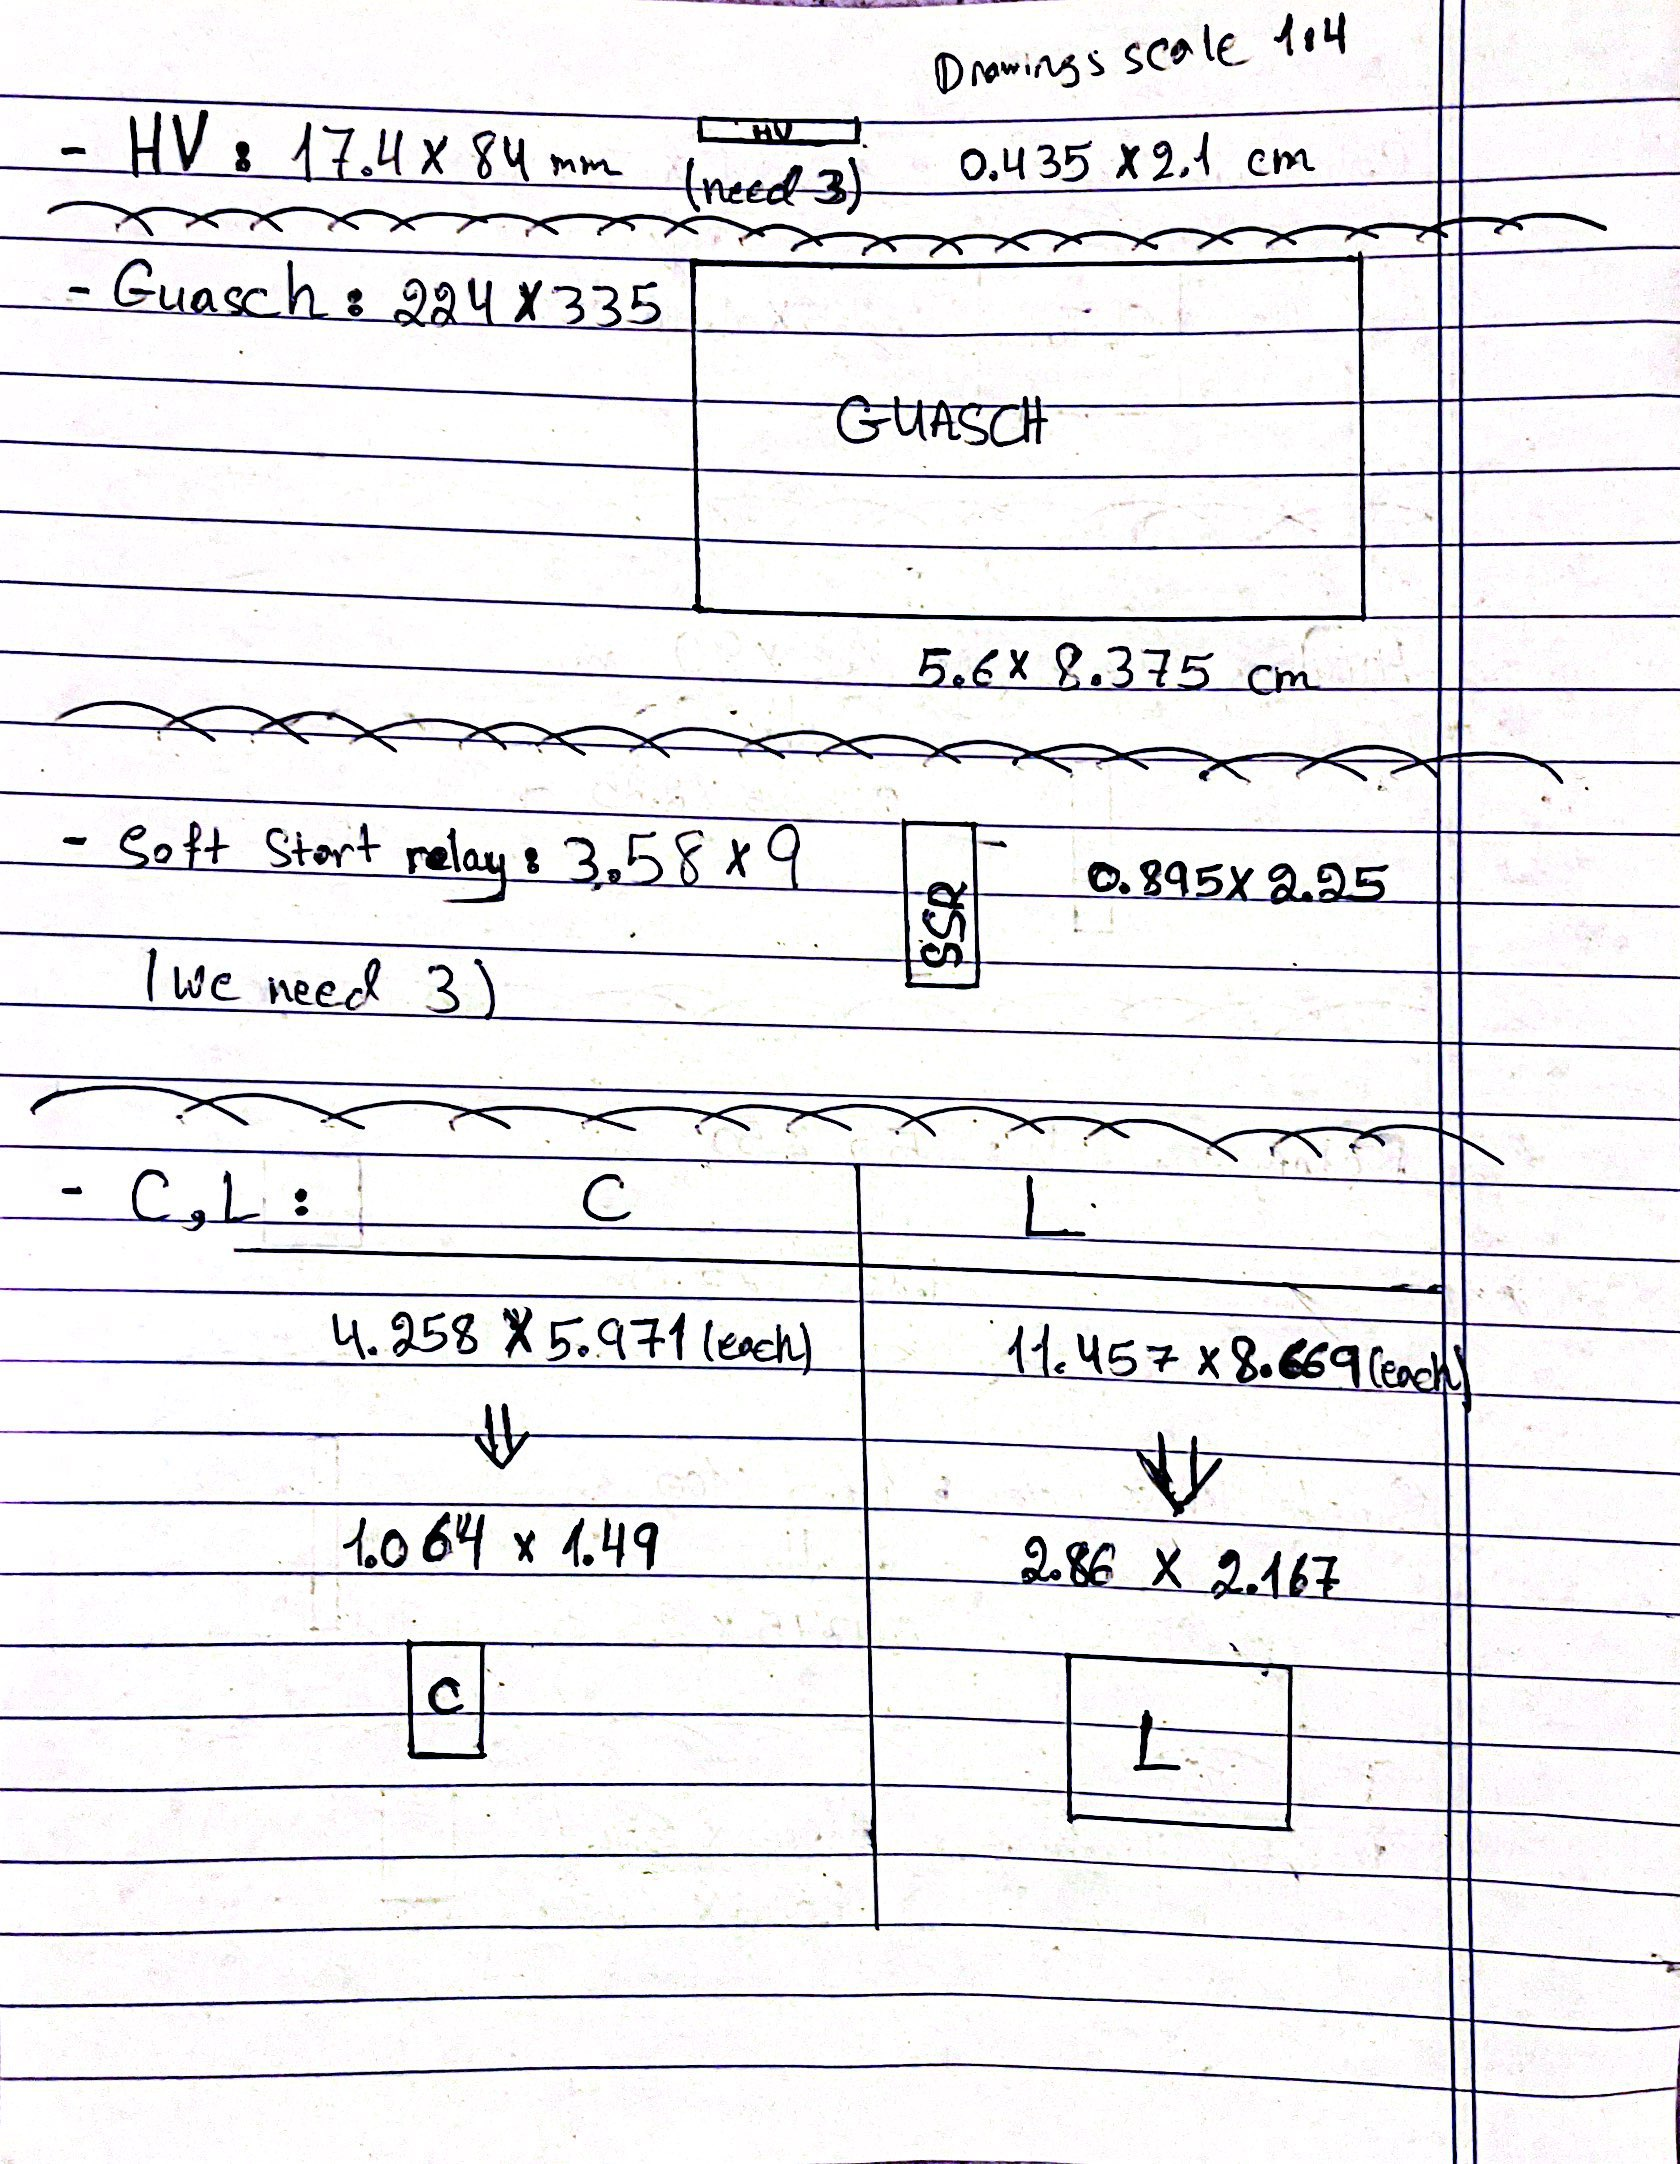 Drawings scale 1:4
- HV: 17.4 x 84 mm
HV
(need 3)
0.435 x 2.1 cm
- Guasch: 224 x 335
GUASCH
5.6 x 8.375 cm
- Soft Start relay: 3.58 x 9
SSR
0.895 x 2.25
(we need 3)
- C, L: C L
4.258 x 5.971 (each) 11.457 x 8.669 (each)
⇓ ⇓
1.064 x 1.49 2.86 x 2.167
C L